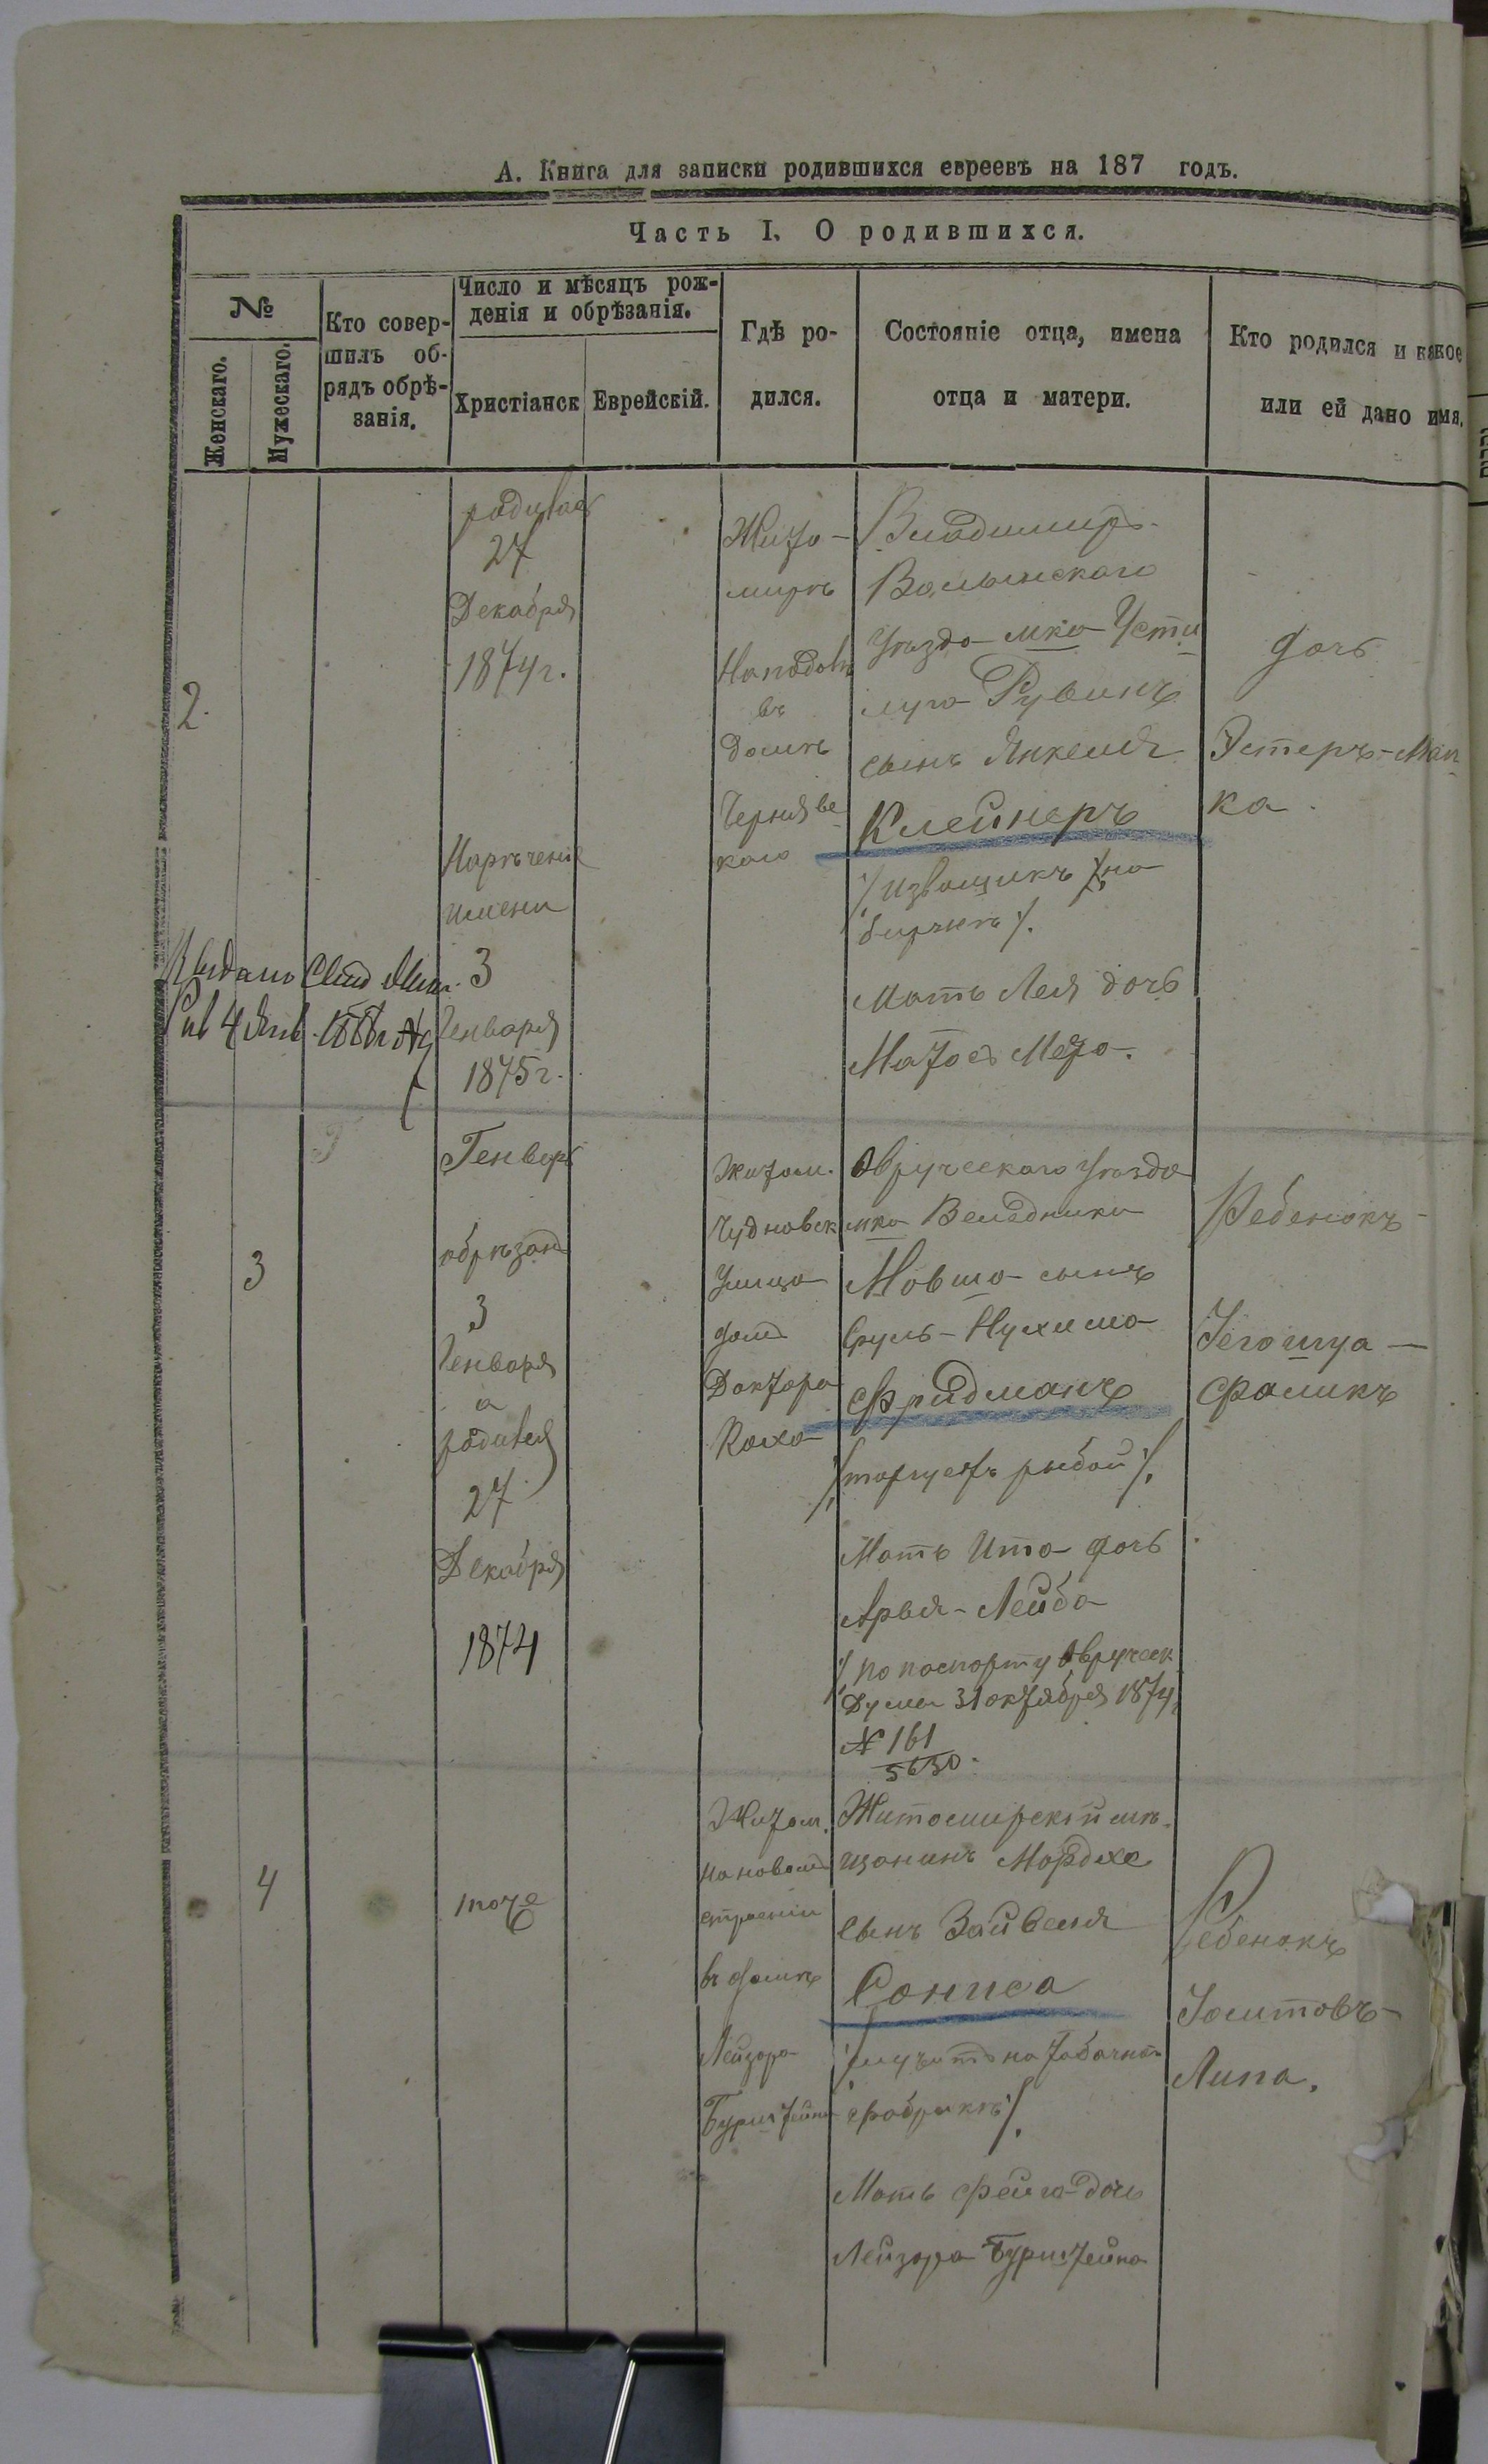 А. Книга для записки родившихся евреевъ на 187 годъ.
Часть I. О родившихся.
№
Женскаго.
Мужескаго.
Кто совер-
шилъ об-
рядъ обрѣ-
занія.
Число и мѣсяцъ рож-
денія и обрѣзанія.
Христіанск
Еврейскій.
Гдѣ ро-
дился.
Состояніе отца, имена
отца и матери.
Кто родился и какое
или ей дано имя.
2.
родилась
27
Декабря
1874 г.
Нарѣченіе
имени
3
Генваря
1875 г.
Выдано
4 Янв.
Жито-
миръ
въ
домѣ
Чернявс-
каго
Владимиръ-
Волынскаго
Уѣзда мка Усти-
луга Рувинъ
сынъ Янкеля
Клейнеръ
/извощикъ на
биржѣ/.
Мать Лея дочь
дочь
Эстеръ-Мал-
ка.
3
Генваря
обрѣзанъ
3
Генваря
а
родился
27
Декабря
1874
Житом.
Чудновск
Улица
домъ
Доктора
Коха
Овручскаго Уѣзда
мка Веледники
Мовша сынъ
Сруль-Нухима
Фридманъ
/торгуетъ рыбой/.
Мать Ита дочь
Арья-Лейба
/по паспорту Овручск
Думы 31 октября 1874
№ 161
5630.
Ребенокъ
Іегошуа-
Фроликъ
4
тоже
Житом.
на новомъ
строеніи
въ домѣ
Лейзора
Бурштейна
Житомирскій мѣ-
щанинъ Мордхе
сынъ Зайвеля
Сониса
/служитъ на табачной
фабрикѣ/.
Мать Фейга дочь
Лейзора Бурштейна
Ребенокъ
Іомтовъ-
Липа.